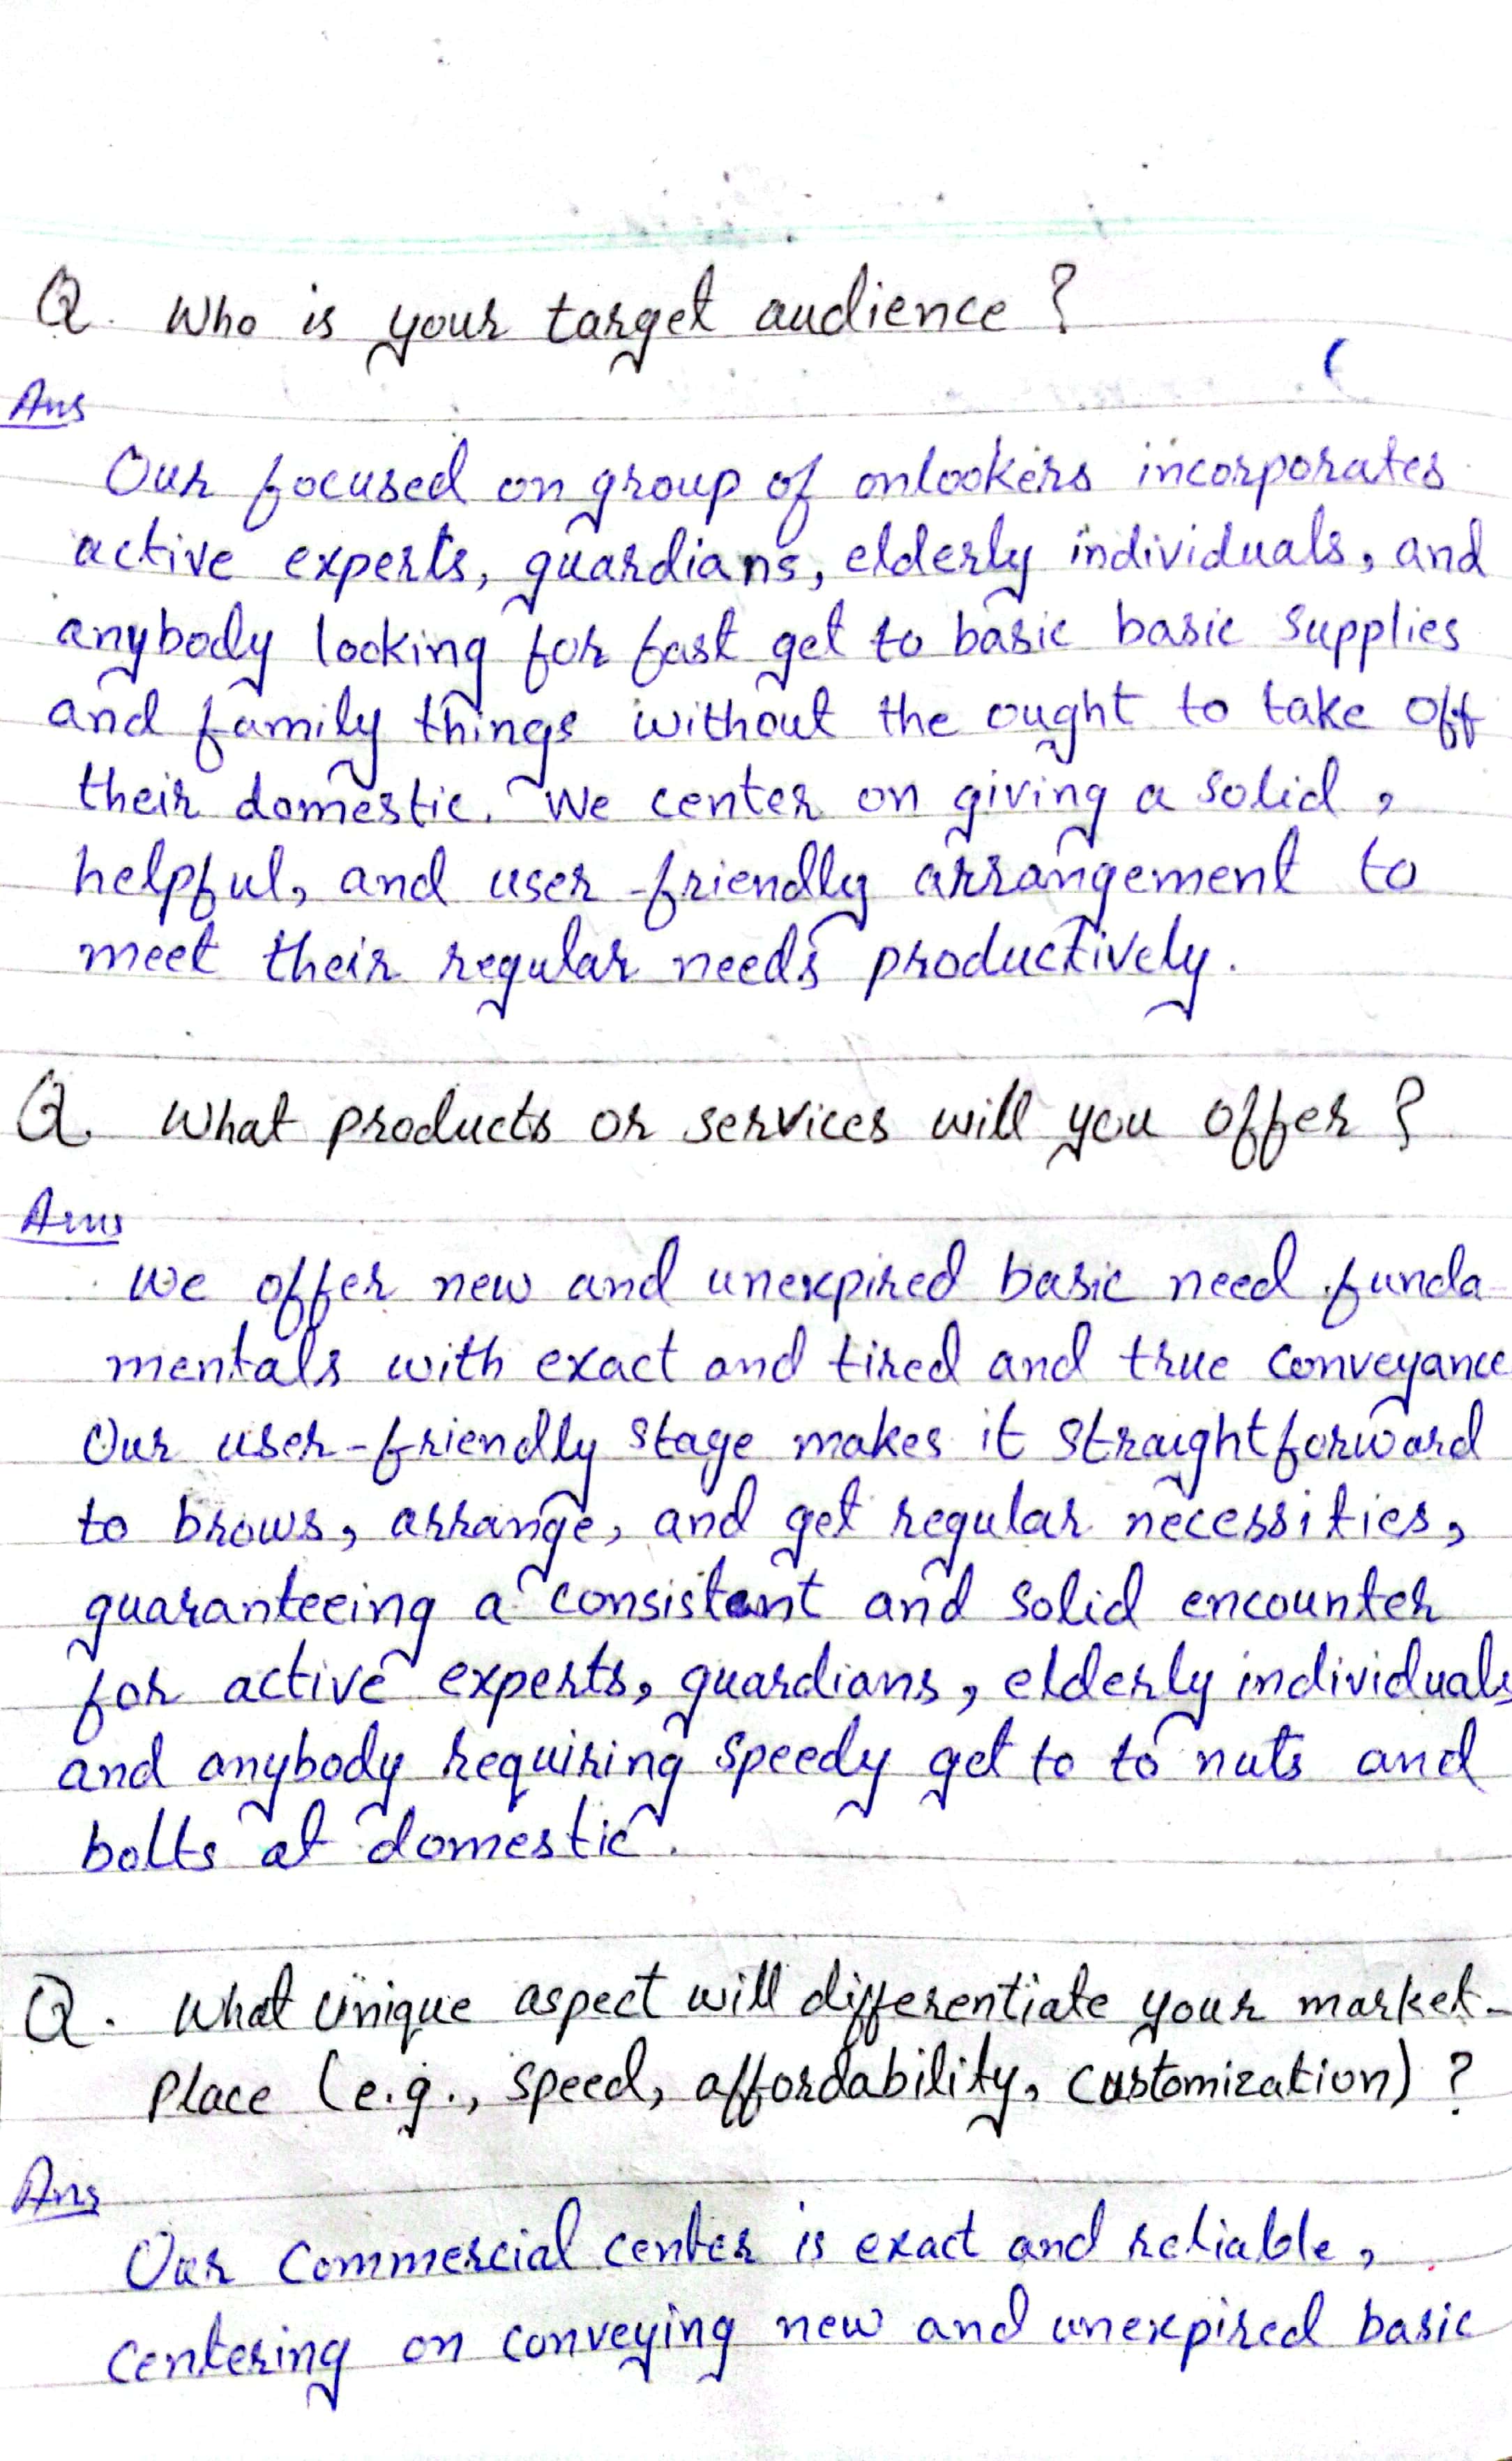 Q. Who is your target audience ?
Ans
Our focused on group of onlookers incorporates
active experts, guardians, elderly individuals, and
anybody looking for fast get to basic basic supplies
and family things without the ought to take off
their domestic. We center on giving a solid,
helpful, and user-friendly arrangement to
meet their regular needs productively.
Q. What products or services will you offer ?
Ans
We offer new and unexpired basic need funda-
mentals with exact and tired and true conveyance
Our user-friendly stage makes it straightforward
to brows, arrange, and get regular necessities,
guaranteeing a consistent and solid encounter
for active experts, guardians, elderly individuals
and anybody requiring speedy get to to nuts and
bolts at domestic.
Q. What unique aspect will differentiate your market-
place (e.g., speed, affordability, customization) ?
Ans
Our commercial center is exact and reliable,
centering on conveying new and unexpired basic